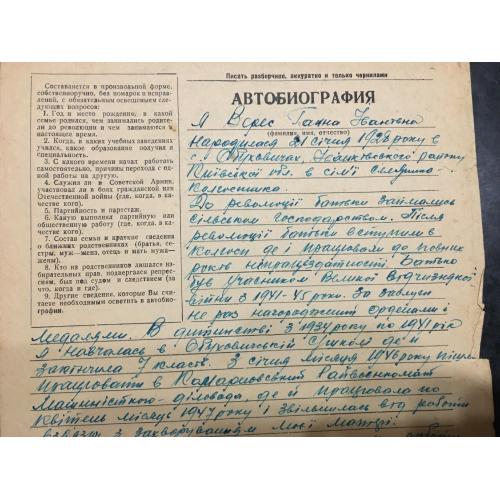 Составляется в произвольной форме,
собственноручно, без помарок и исправ-
лений, с обязательным освещением сле-
дующих вопросов:
1. Год и место рождения, в какой
семье родился, чем занимались родите-
ли до революции и чем занимаются в
настоящее время.
2. Когда, в каких учебных заведениях
учился, какое образование получил и
специальность.
3. С какого времени начал работать
самостоятельно, причины перехода с
одной работы на другую.
4. Служил ли в Советской Армии,
участвовал ли в боях гражданской или
Отечественной войны (где, когда, в каче-
стве кого).
5. Партийность и партстаж.
6. Какую выполнял партийную или
общественную работу (где, когда, в ка-
честве кого).
7. Состав семьи и краткие сведения
о ближких родственниках (братья, се-
стры, муж—жена, отец и мать мужа—
жены).
8. Кто из родственников лишался из-
бирательных прав, подвергался репрес-
сиям, был под судом и следствием (где,
когда и за что).
9. Другие сведения, которые Вы счи-
таете необходимым осветить в автобио-
графии.
Писать разборчиво, аккуратно и только чернилами
АВТОБИОГРАФИЯ
Я Верес Ганна Іванівна
(фамилия, имя, отчество)
народилася 21 січня 1926 року в
с. Обуховичах, Іванківського району
Київської обл. в сім'ї селянина-
колгоспника.
До революції батьки займались
сільським господарством. Після
революції батьки вступили в
колгосп де і працювали до певних
років непрацездатності. Батько
був учасником Великої Вітчизняної
війни з 1941-45 роки. За заслуги
не раз нагороджений орденами і
медалями. В дитинстві з 1934 року по 1941 рік
я навчалась в Обуховичській с/школі де й
закінчила 7 класів. З січня місяця 1946 року пішла
працювати в райвоєнкомат
машиністкою-діловода де й працювала по
квітень місяць 1947 року і звільнилась від роботи
в зв'язку з захворуванням моєї матері.